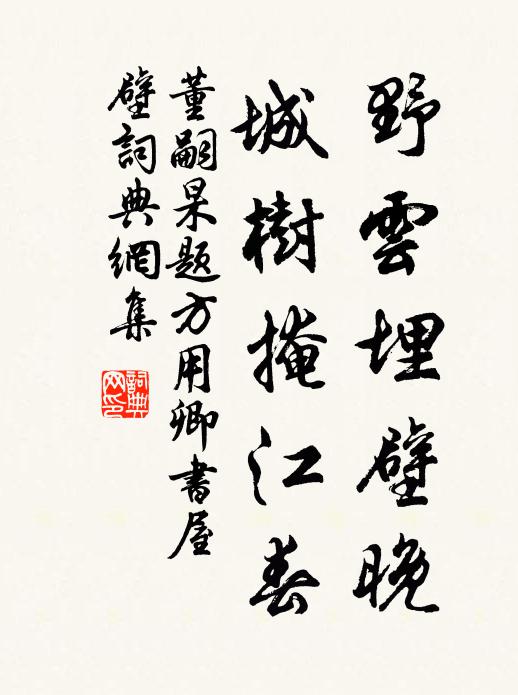 野雲埋壁晚
城樹掩江春
董嗣杲題方用卿書屋
壁詞典網集
詞典
网印